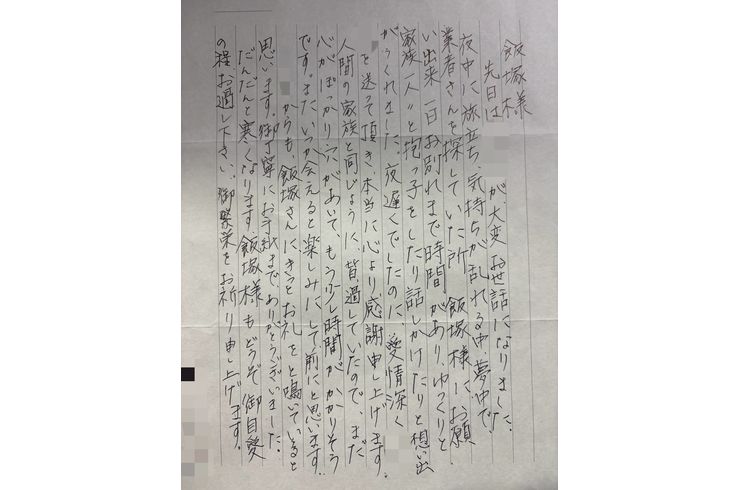 飯塚様
先日は　が、大変お世話になりました。
夜中に旅立ち、気持ちが乱れる中、夢中で、
業者さんを探していた所、飯塚様にお願
い出来、一日お別れまで時間があり、ゆっくりと、
家族一人〃と抱っ子をしたり話しかけたりと想い出
がつくれました。夜遅くでしたのに、愛情深く
を送って頂き、本当に心より感謝申し上げます。
人間の家族と同じように、皆過していたので、まだ
心がぽっかり穴があいて、もう少し時間がかかりそう
です。また、いつか会えると楽しみにして前にと思います。
からも飯塚さんにきっとお礼をと鳴いていると
思います。御丁寧にお手紙まで、ありがとうございました。
だんだんと寒くなります。飯塚様もどうぞ御自愛
の程お過し下さい。御繁栄をお祈り申し上げます。